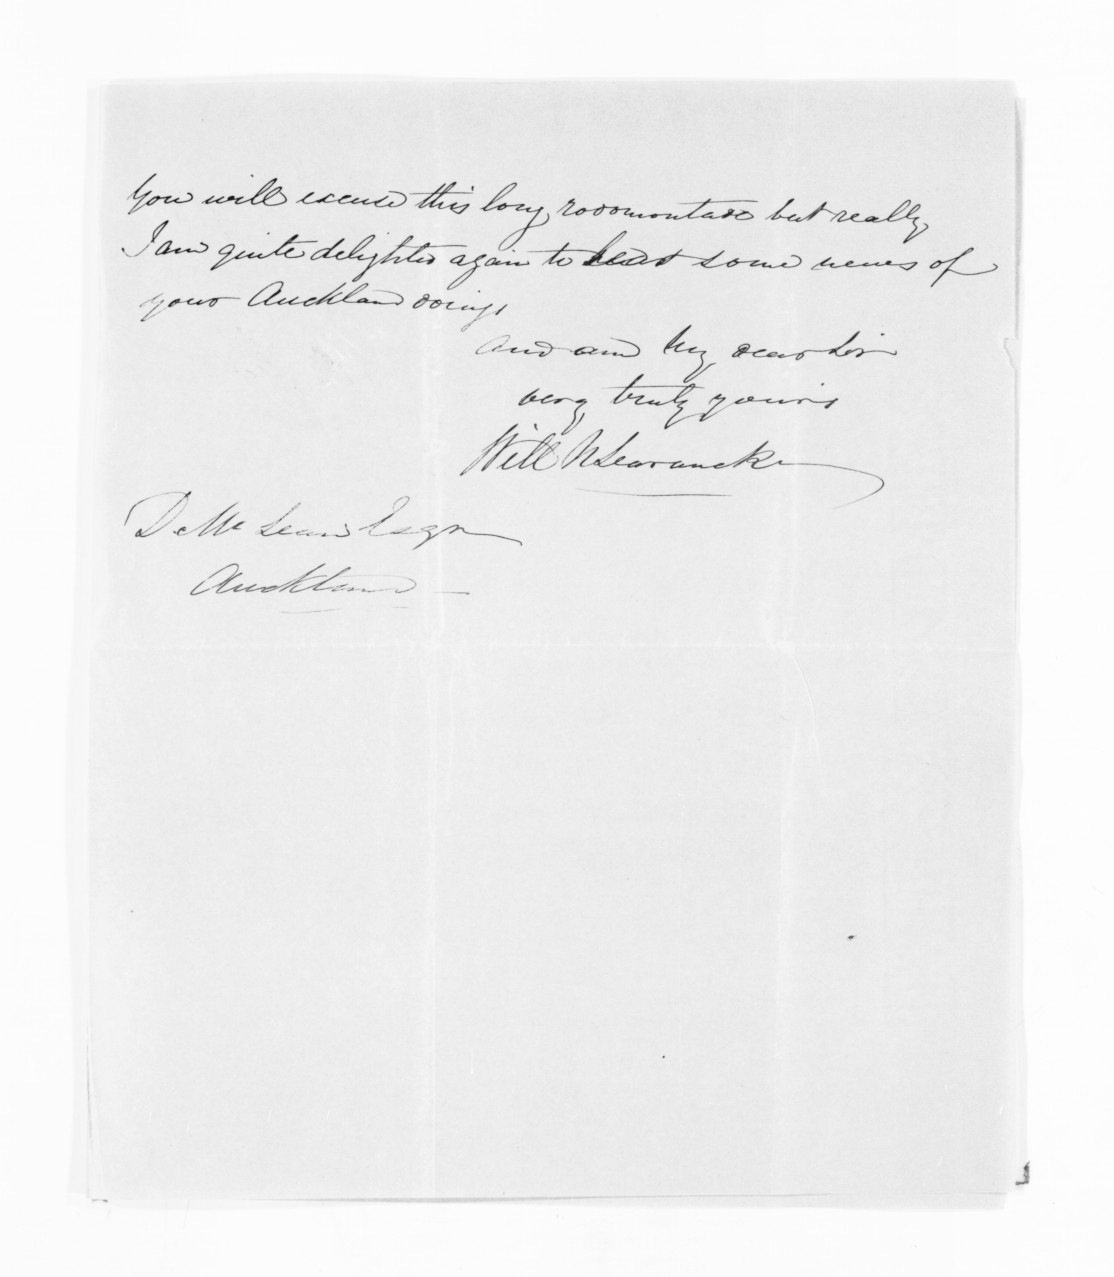 You will excuse this long rodomontade but really
I am quite delighted again to hear some news of
your Auckland doings
and am My dear Sir
very truly yours
Will N Searancke
D McLean Esqr
Auckland